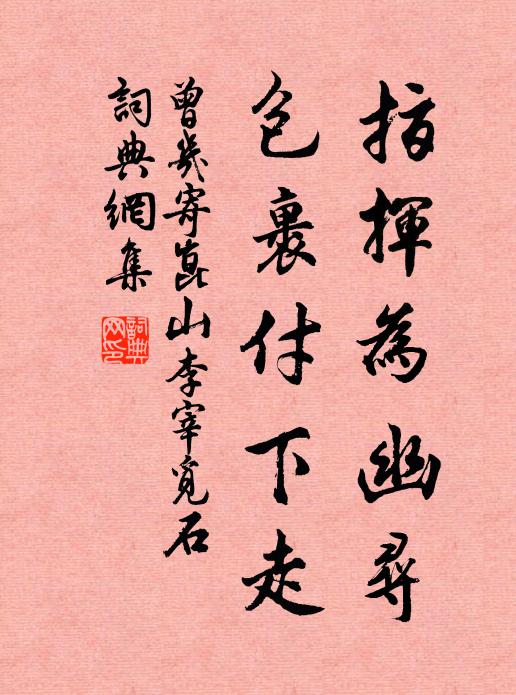 指揮為幽尋
包裹付下走
曾幾寄崑山李宰覓石
詞典網集
詞典網印